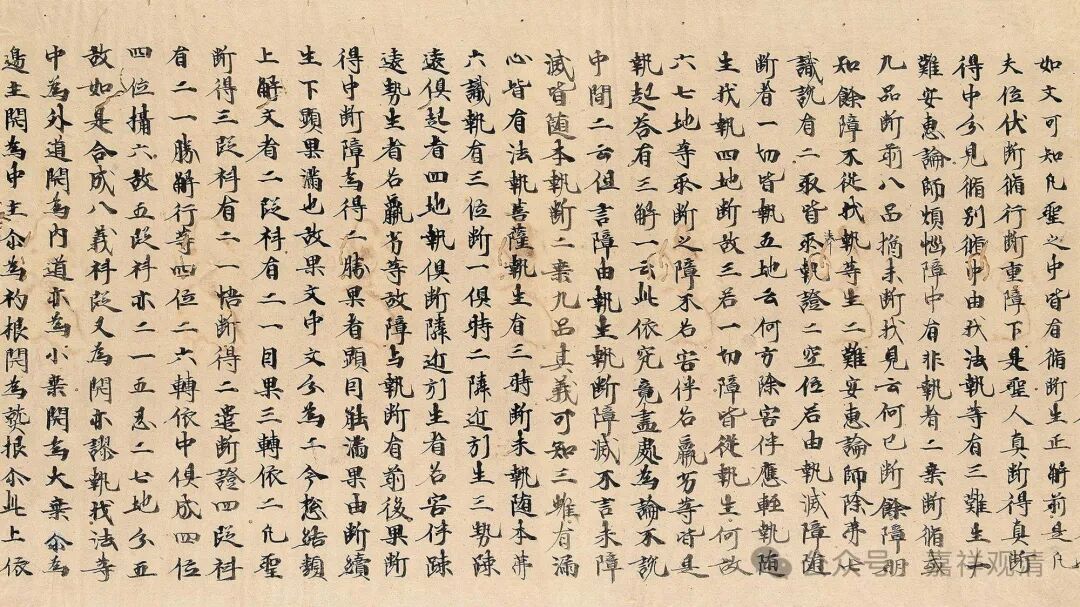 如文可知凡聖之中皆有循断生正解前是凡
夫位伏断循行断重障下是聖人真断得真断
得中分見循別循中由我法執等有三難生一
難安惠論師煩惱障中有非執者二乘断循或
九品断前八品猶未断我見云何已断餘障明
知餘障不從我執等生二難安惠論師除第七
識說有二取皆承執證二空位若由執滅障隨
断者一切皆執五地云何方除害伴應輕執隨
生我執四地断故三若一切障皆從執生何故
六七地等所断之障不名害伴名羸劣等皆是
執起荅有三解一云此依究竟盡處為論不說
中間二云但言障由執生執断障滅不言末障
滅皆随本執断二乘九品真義可知三雖有滿
心皆有法執菩薩執生有三時断末執随本第
六識執有三位断一俱時二隣近引生三勢踈
遠俱起者四地執俱断隣近引生者名害伴踈
遠勢生者名羸劣等故障与執断有前後果断
得中断障為得二勝果者顕目能滿果由断續
生下顕果滿也故果文中文分為二今捴結類
上解文者二段科有二一目果三轉依二凡聖
断得三段科有二一悟断得二遣断證四段科
有二一勝解行等四位二六轉依中俱成四位
四位攝六故五段科亦二一五忍二七地分五
故如是合成八義科段又為開亦謬執我法等
中為外道開為內道亦為小乘開為大乘尒為
邊主開為中主尒為朽根開為就根尒此上依
本
公众号 · 嘉祥观清